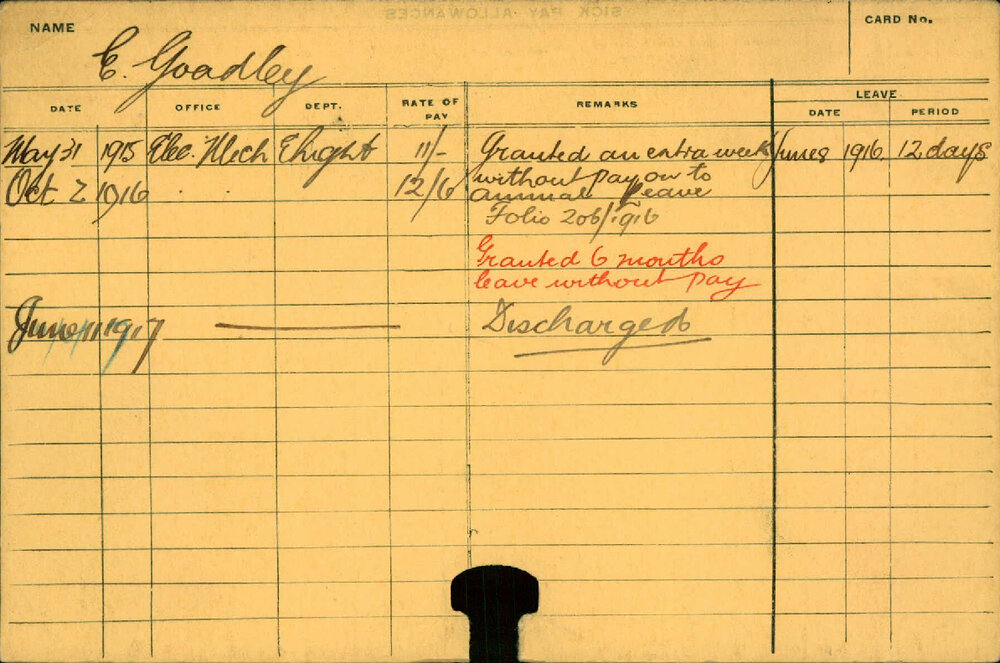 SICK PAY ALLOWANCES
NAME
E. Goadley
CARD No.
DATE OFFICE DEPT. RATE OF PAY REMARKS LEAVE
DATE PERIOD
May 31 1915 Elec. Mech Elight 11/- Granted an extra week June 8 1916 12 days
Oct 2 1916 . . 12/6 without pay on to
annual leave
Folio 206/1916
Granted 6 months
leave without pay
June 11 1917 Discharged